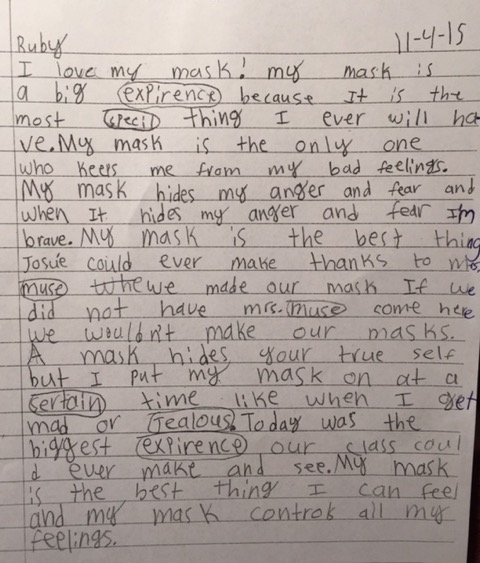 Ruby 11-4-15
I love my mask! my mask is
a big expirence because It is the
most specil thing I ever will ha
ve. My mask is the only one
who keeps me from my bad feelings.
My mask hides my anger and fear and
when It hides my anger and fear I'm
brave. My mask is the best thing
Josúe could ever make thanks to mrs.
muse we made our mask If we
did not have mrs. muse come here
we wouldn't make our masks.
A mask hides your true self
but I put my mask on at a
sertain time like when I get
mad or Jealous. Today was the
biggest expirence our class coul
d ever make and see. My mask
is the best thing I can feel
and my mask controls all my
feelings.